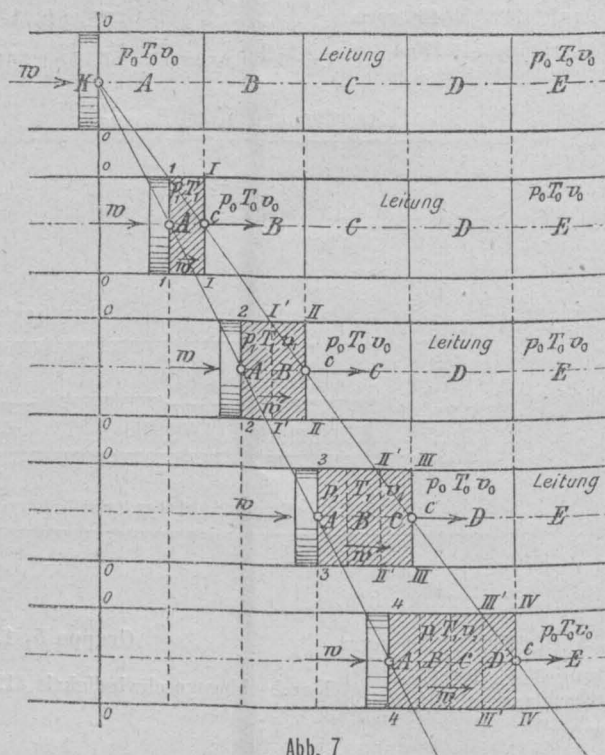 0
p₀ T₀ v₀ Leitung p₀ T₀ v₀
w K A B C D E
0
0 1 I p₀ T₀ v₀
p₁ T₁ p₀ T₀ v₀ Leitung
w A c B C D E
w
0 1 I
0 2 I' II Leitung
p₁ T₁ v₁ p₀ T₀ v₀ p₀ T₀ v₀
w A B c C D E
w
0 2 I' II
0 3 II' III
p₁ T₁ v₁ p₀ T₀ v₀ Leitung
w A B C c D E
w
0 3 II' III
0 4 III' IV
p₁ T₁ v₁ p₀ T₀ v₀
w A B C D c E
w
0 4 III' IV
Abb. 7